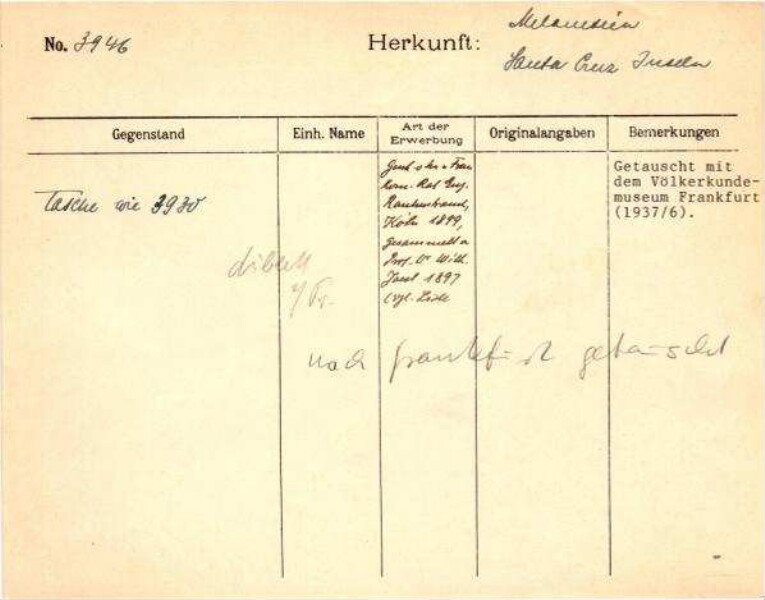 No. 3946
Herkunft:
Melanesien
Santa Cruz Inseln
Gegenstand
Einh. Name
Art der
Erwerbung
Originalangaben
Bemerkungen
Tasche wie 3930
Gesch. v. Hrn. u. Frau
Kom. Rat Eug.
Rautenstrauch,
Köln 1899,
gesammelt v.
Prof. Dr Wilh.
Joest 1897
(vgl. Liste
Getauscht mit
dem Völkerkunde-
museum Frankfurt
(1937/6).
nach Frankfurt getauscht